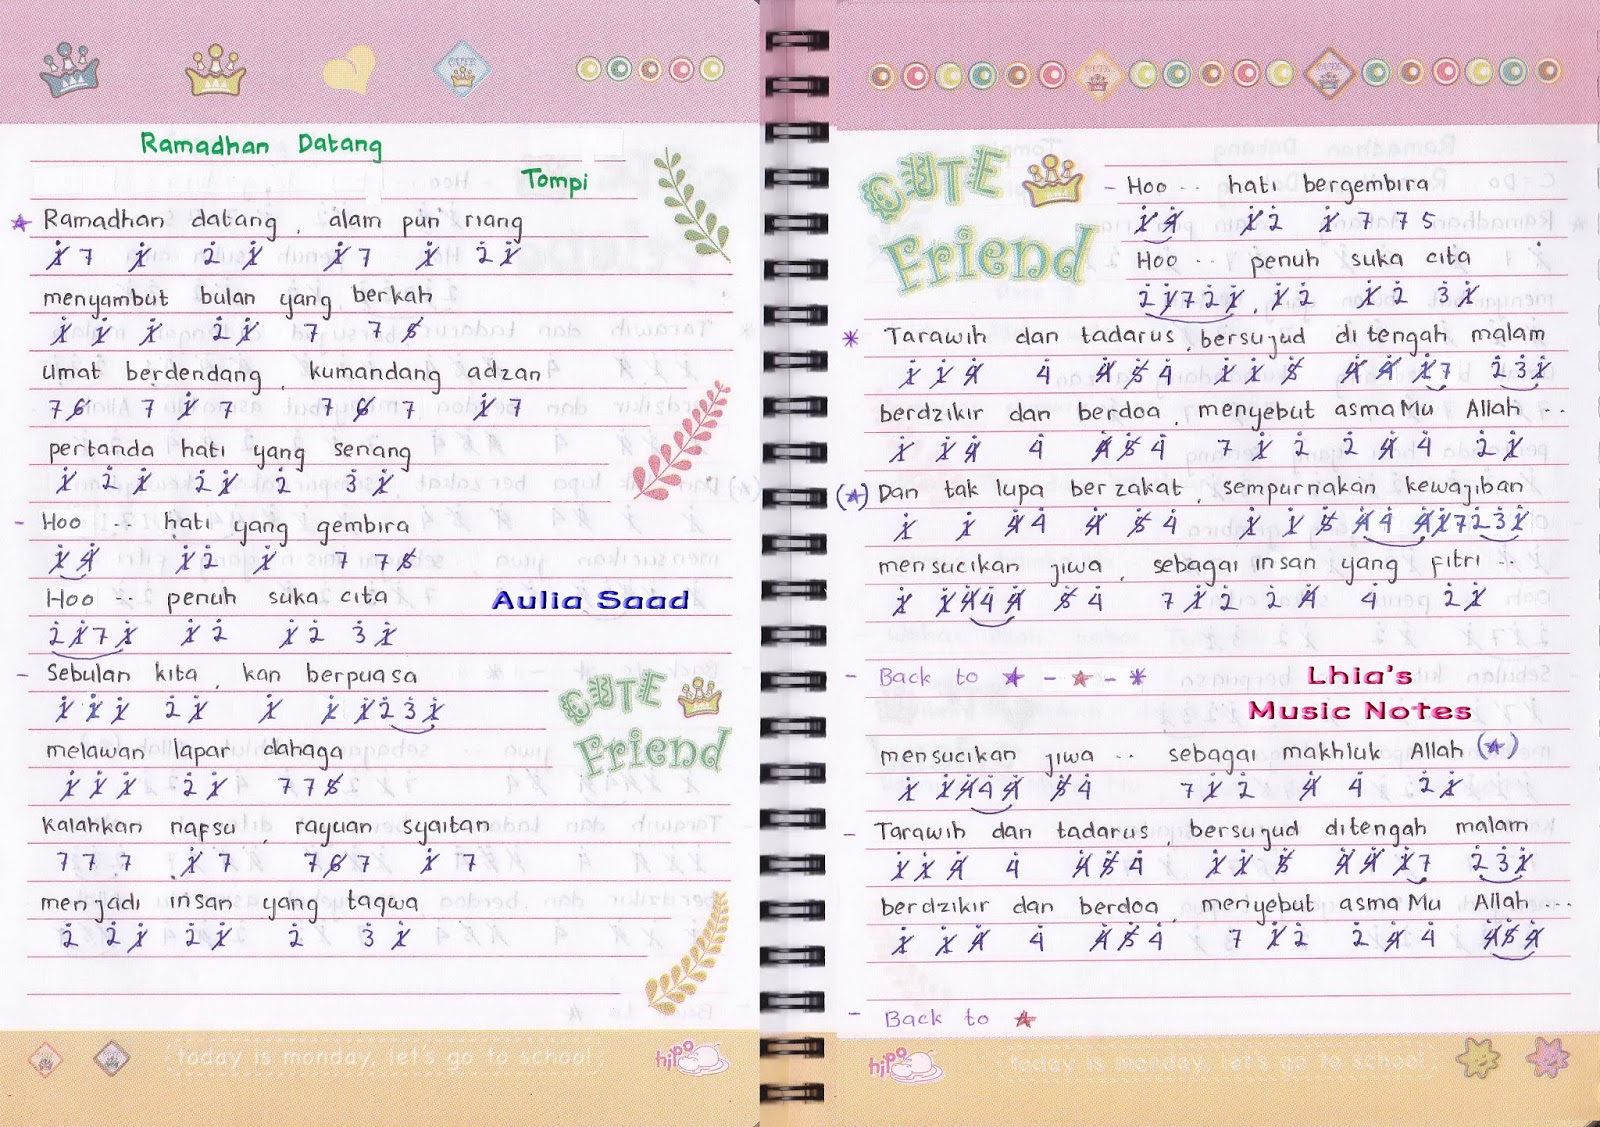 Ramadhan Datang
Tompi
★ Ramadhan datang, alam pun riang
1 7 1 2 1 1 7 1 2 1
menyambut bulan yang berkah
1 1 1 2 1 7 7 6
Umat berdendang, kumandang adzan
7 6 7 1 7 7 6 7 1 7
pertanda hati yang senang
1 2 1 2 1 2 3 1
- Hoo ... hati yang gembira
1 4 1 2 1 7 7 6
Hoo ... penuh suka cita
2 1 7 1 1 2 1 2 3 1
Aulia Saad
- Sebulan kita, kan berpuasa
1 1 1 2 1 1 1 1 2 3 1
melawan lapar dahaga
1 1 1 2 1 7 7 6
Kalahkan napsu, rayuan syaitan
7 7 7 1 7 7 6 7 1 7
menjadi insan yang taqwa
2 2 1 2 1 2 3 1
CUTE Friend
today is monday, let's go to school
hipo
CUTE Friend
- Hoo ... hati bergembira
1 4 1 2 1 7 7 5
Hoo ... penuh suka cita
2 1 7 2 1, 1 2 1 2 3 1
* Tarawih dan tadarus, bersujud di tengah malam
1 1 4 4 4 5 4 1 1 5 4 4 1 7 2 3 1
berdzikir dan berdoa, menyebut asmaMu Allah ...
1 1 4 4 4 5 4 7 1 2 2 4 4 2 1
(★) Dan tak lupa berzakat, sempurnakan kewajiban
1 1 4 4 4 5 4 1 1 5 4 4 4 1 7 2 3 1
mensucikan jiwa, sebagai insan yang fitri ...
1 1 4 4 4 5 4 7 1 2 2 4 4 2 1
- Back to ★ - ★ - *
Lhia's
Music Notes
mensucikan jiwa ... sebagai makhluk Allah (★)
1 1 4 4 4 5 4 7 1 2 4 4 2 1
- Tarawih dan tadarus, bersujud ditengah malam
1 1 4 4 4 5 4 1 1 5 4 4 1 7 2 3 1
berdzikir dan berdoa, menyebut asmaMu Allah ...
1 1 4 4 4 5 4 7 1 2 2 4 4 4 5 4
- Back to ★
hipo
today is monday, let's go to school